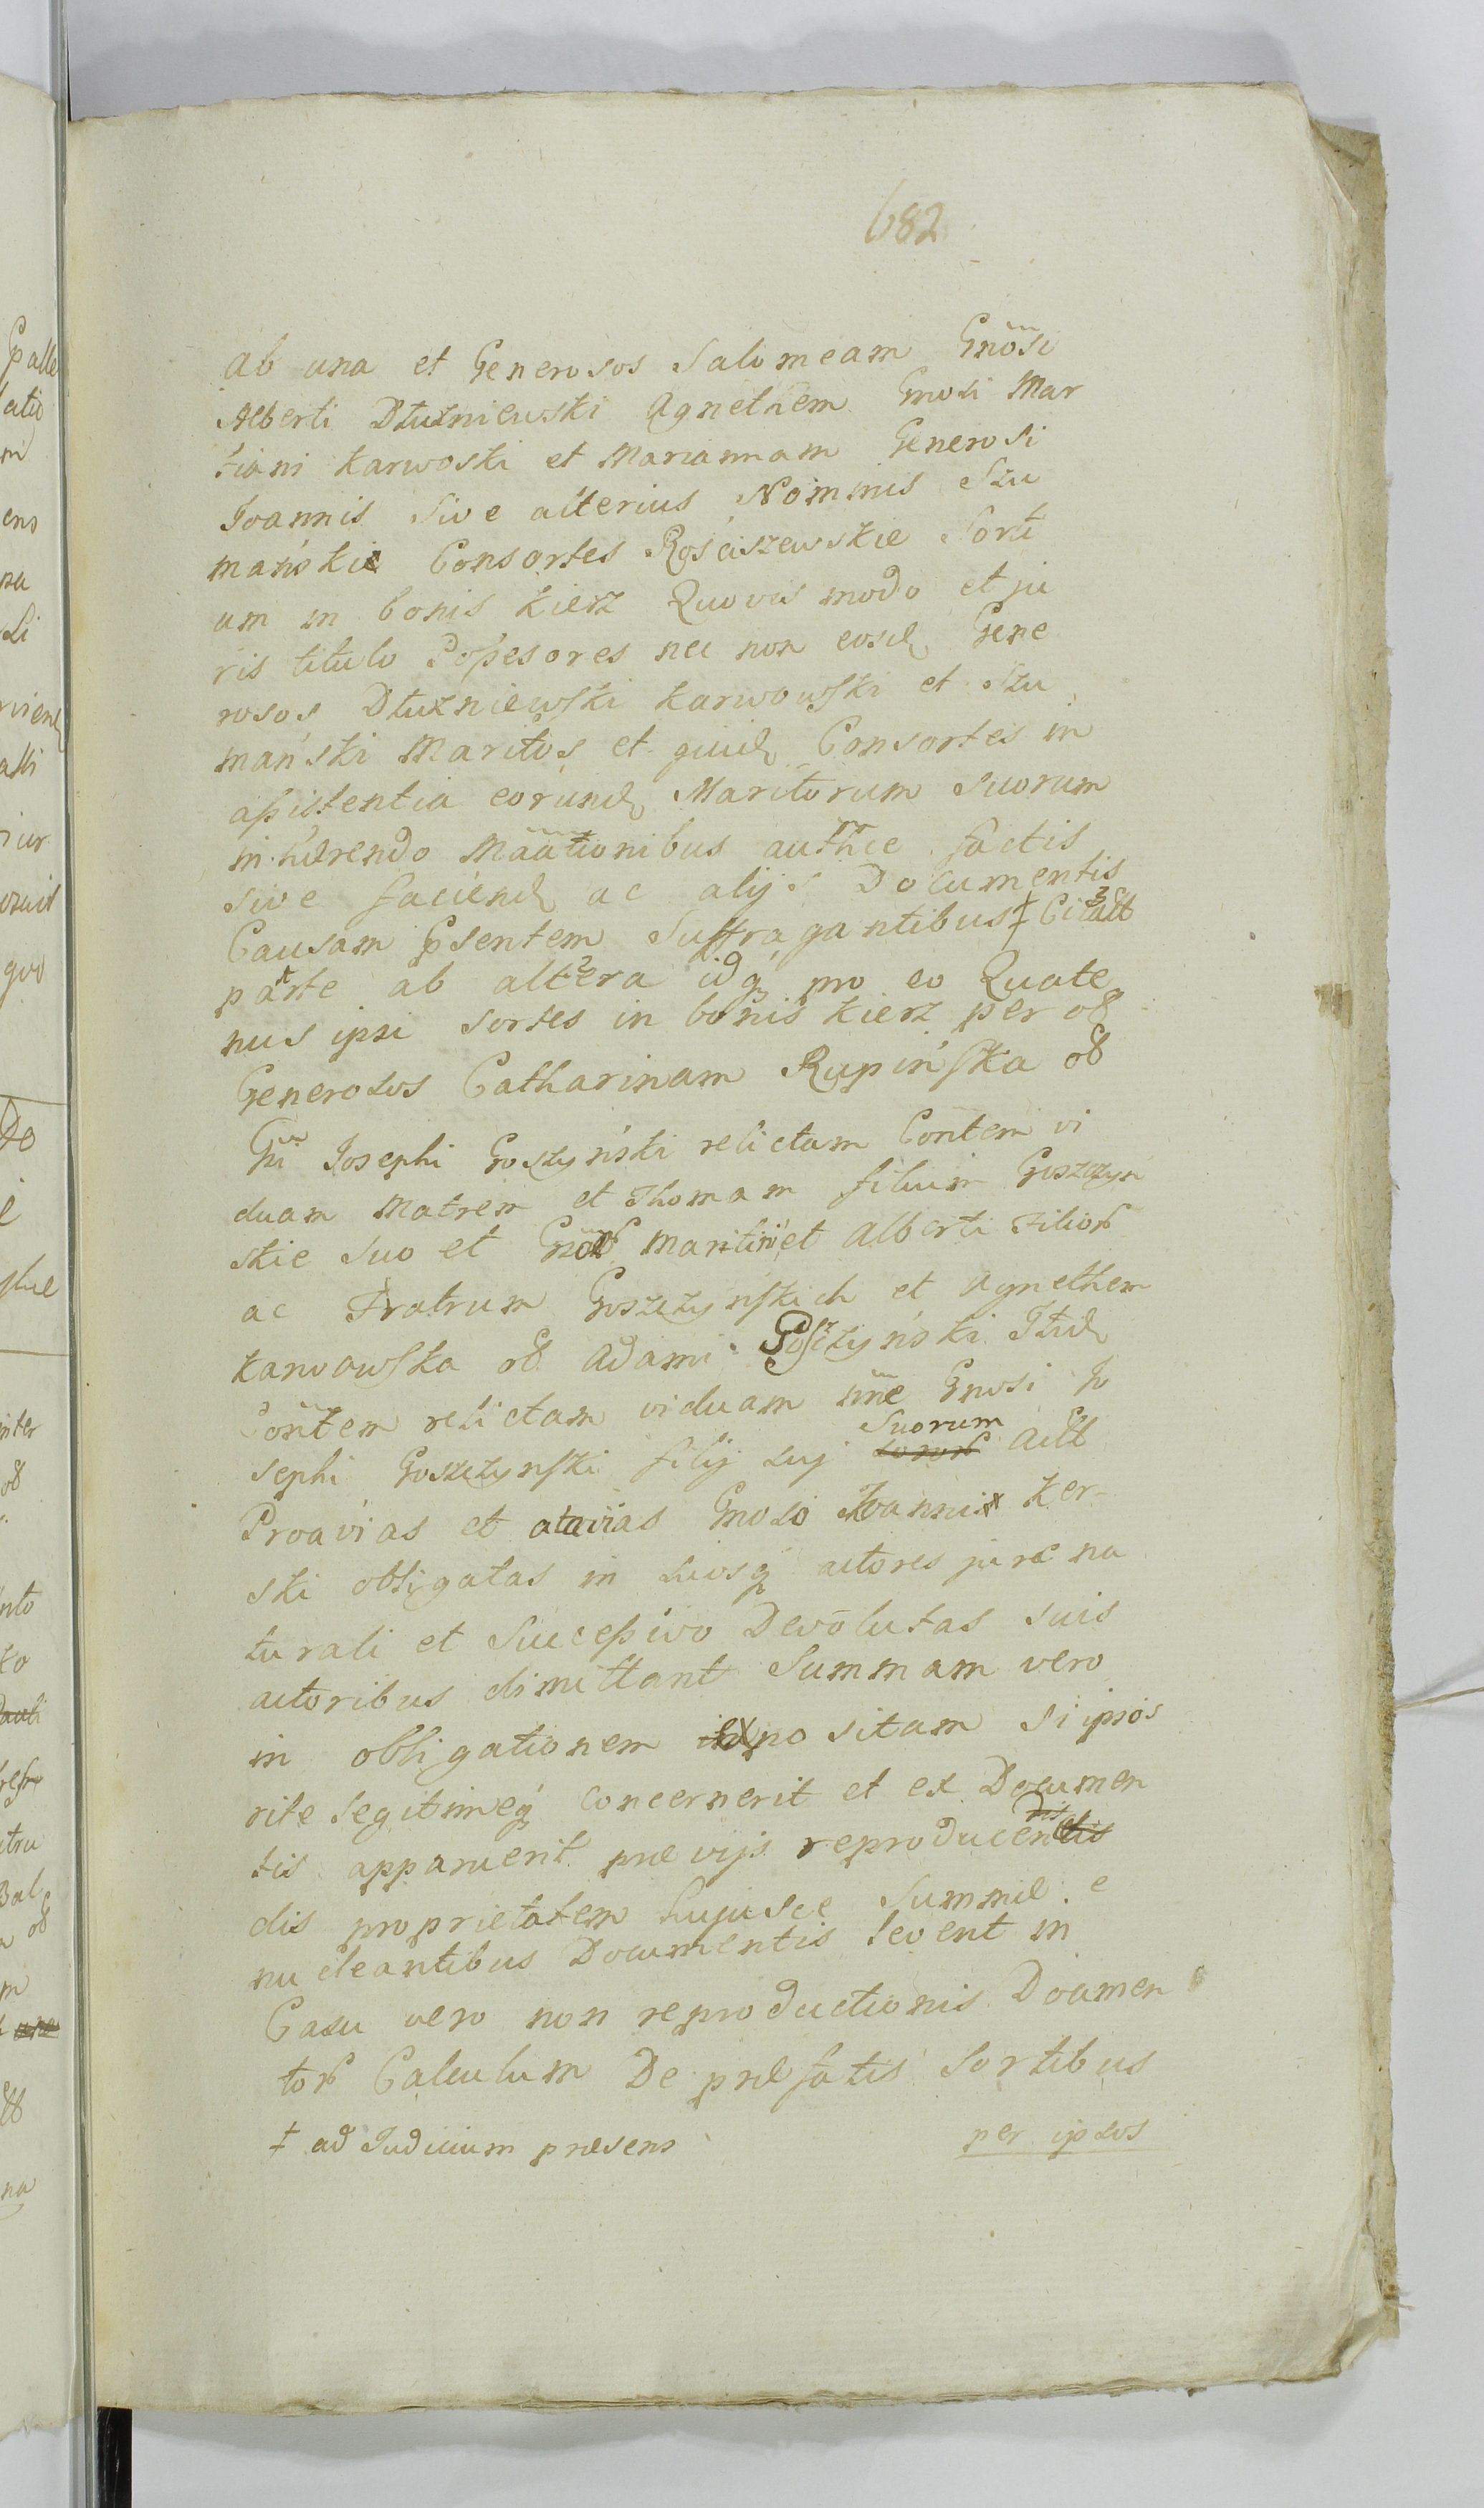 682
ab una et Generosos Salomeam Gnosi
Alberti Dłużniewski Agnethem Gnosi Mar
tiani Karwoski et Mariannam Generosi
Joannis Sive alterius Nominis Szu
mańskie Consortes Rościszewskie Sorti
um in bonis Kierz Quovis modo et ju
ris titulo Possesores nec non eosd Gene
rosos Dłużniewski Karwowski et Szu
mański Maritos et quid Consortes in
assistentia eorund Maritorum Suorum
inhærendo Maationibus authce factis
sive faciend ac alijs Documentis
Causam Psentem Suffragantibus ‡ Citatt
parte ab altera idq pro eo Quate
nus ipsi Sortes in bonis Kierz per oł
Generosos Catharinam Rupińska oł
Gni Josephi Goszyński relictam Contem vi
duam Matrem et Thomam filium Goszczyń
skie Suo et Martini et Alberti Filior
ac Fratrum Goszczynskich et Agnethem
Karwowska oł Adami Goszczyński Itid
Contem relictam viduam nne Gnosi Jo
sephi Goszczynski filij sui Suorum Actt
Proavias et atavias Gnoso Joanni Kier
ski obligatas in suosq actores jure na
turali et Successivo Devolutas suis
actoribus dimittant Summam vero
in obligationem expositam si ipsos
rite legitimeq concernerit et ex Documen
tis apparuerit prævijs reproducen
dis proprietatem hujusce Summæ e
nucleantibus Documentis levent in
Casu vero non reproductionis Doumen
tor Calculum De præfatis Sortibus
‡ ad Judicium præsens
per ipsos